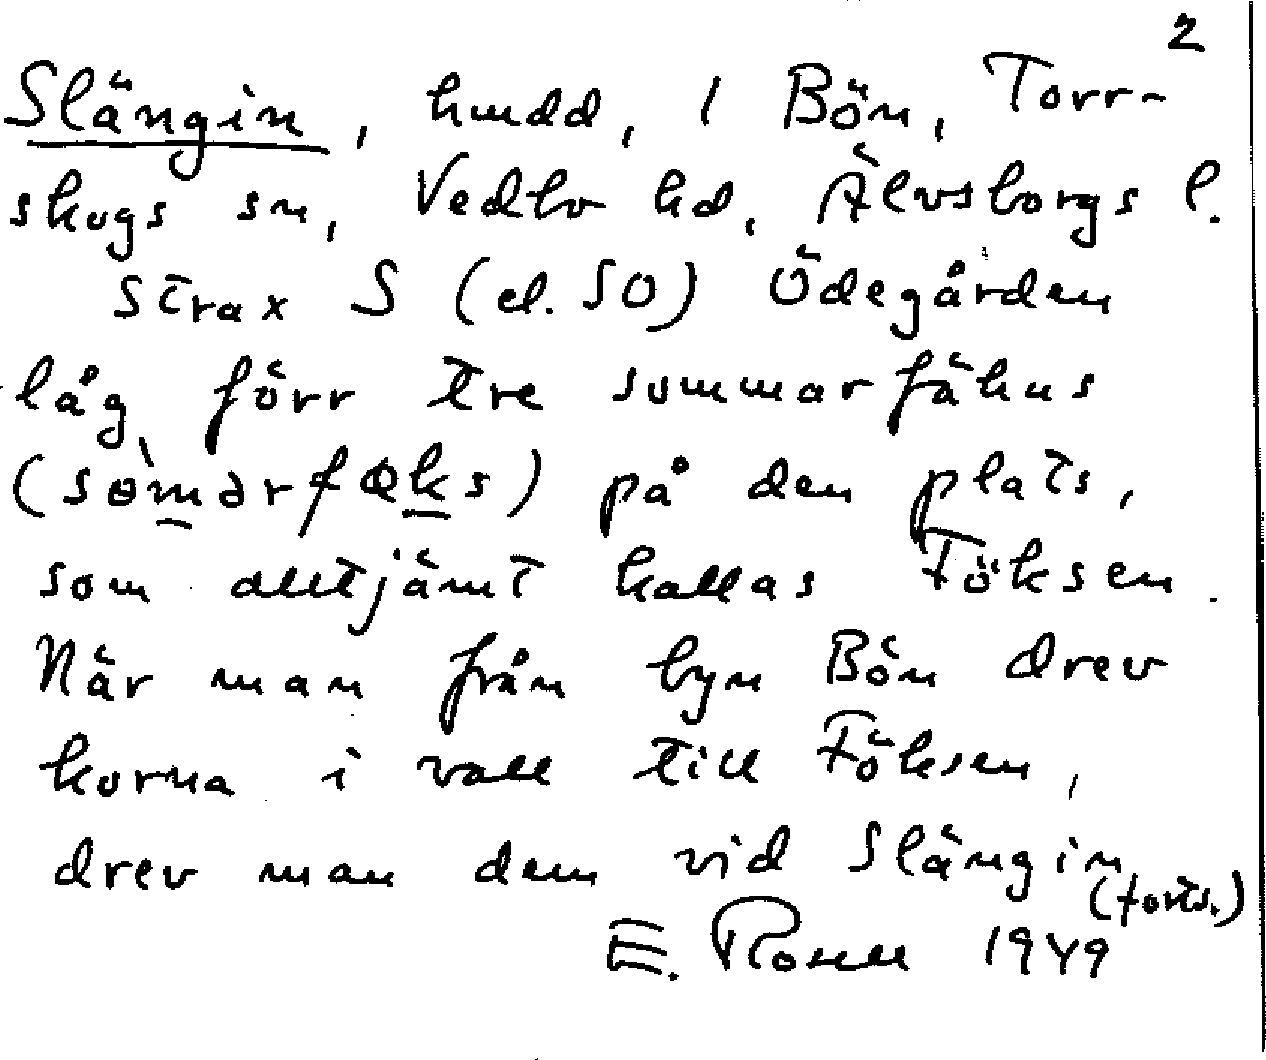 2
Slängin, hmdd, 1 Bön, Torr-
skogs sn, Vedbo hd, Älvsborgs l.
Strax S (el. SO) Ödegården
låg förr tre sommarfähus
på den plats,
som alltjämt kallas Föksen.
När man från byn Bön drev
korna i vall till Föksen,
drev man dem vid Slängin
(forts.)
E. Rosell 1949